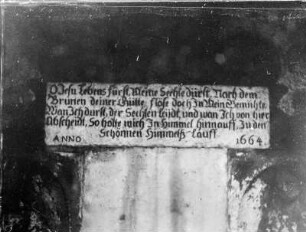 O Jesu Lebens fürst, Meine Seehle dürst, Nach dem
Brünen deiner Gütte, flöse doch In Mein Gemühte
Wan Ich dürst, der Seehlen leidt, und wan Ich von hier
Abscheidt, So hohle mich In Himmel hinnauff, Zu den
Schönnen Himmelß Lauff.
ANNO 1664.